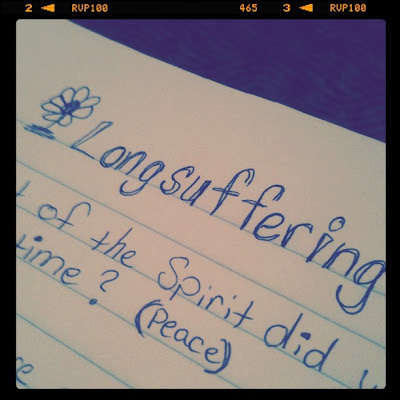 2 RVP100 465 3 RVP100
Longsuffering
of the Spirit did
time? (Peace)